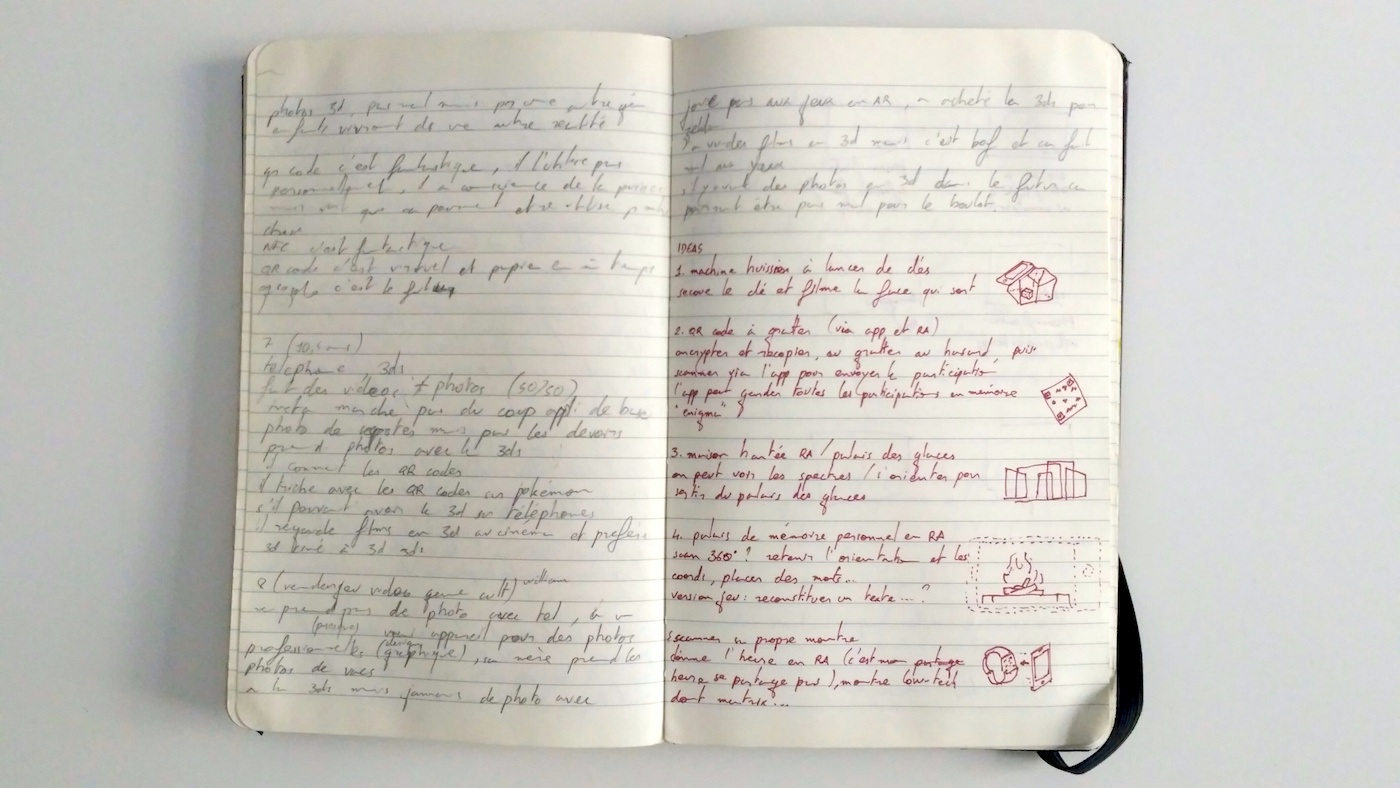 photos 3d, pas mal mais pour une autre
enfants vivront de une autre réalité
qr code c'est fantastique, il l'utilise pas
personnellement, il a conscience de la
mais que ça pourrait être utilisé
chose
NFC c'est fantastique
QR code c'est virtuel et papier en m temps
google c'est le futur
7 (10,5 ans)
téléphone, 3ds
fait des vidéos + photos (50/50)
marche pas du coup appli de base
photo de mais pas les devoirs
prend photos avec la 3ds
connait les QR codes
il triche avec les QR codes sur pokémon
s'il pouvait avoir la 3d sur téléphones
il regarde films en 3d au cinéma et préfère
3d ciné à 3d 3ds
8 (vendeur video game cult) william
ne prend pas de photo avec tel, a un
(photos) vrai appareil pour des photos
professionnelles (design graphique), sa mère prend les
photos de vacs
a la 3ds mais jamais de photo avec
joue pas aux jeux en AR, a acheté la 3ds pour
zelda
a vu des films en 3d mais c'est bof et ça fait
mal aux yeux
s'il y avait des photos en 3d dans le futur ça
pourrait être pas mal pour le boulot.
IDEAS
1. machine huissier à lancer de dés
secoue le dé et filme la face qui sort
2. QR code à gratter (via app et RA)
encrypter et recopier, ou gratter au hasard, puis
scanner via l'app pour envoyer la participation
l'app peut garder toutes les participations en mémoire
"enigma" ?
3. maison hantée RA / palais des glaces
on peut voir les spectres / s'orienter pour
sortir du palais des glaces
4. palais de mémoire personnel en RA
scan 360° ? retenir l'orientation et les
coords, placer des mots...
version jeu : reconstituer un texte ... ?
5 scanner sa propre montre
donne l'heure en RA (c'est mon partage
heure se partage pas), montre low-tech
dont